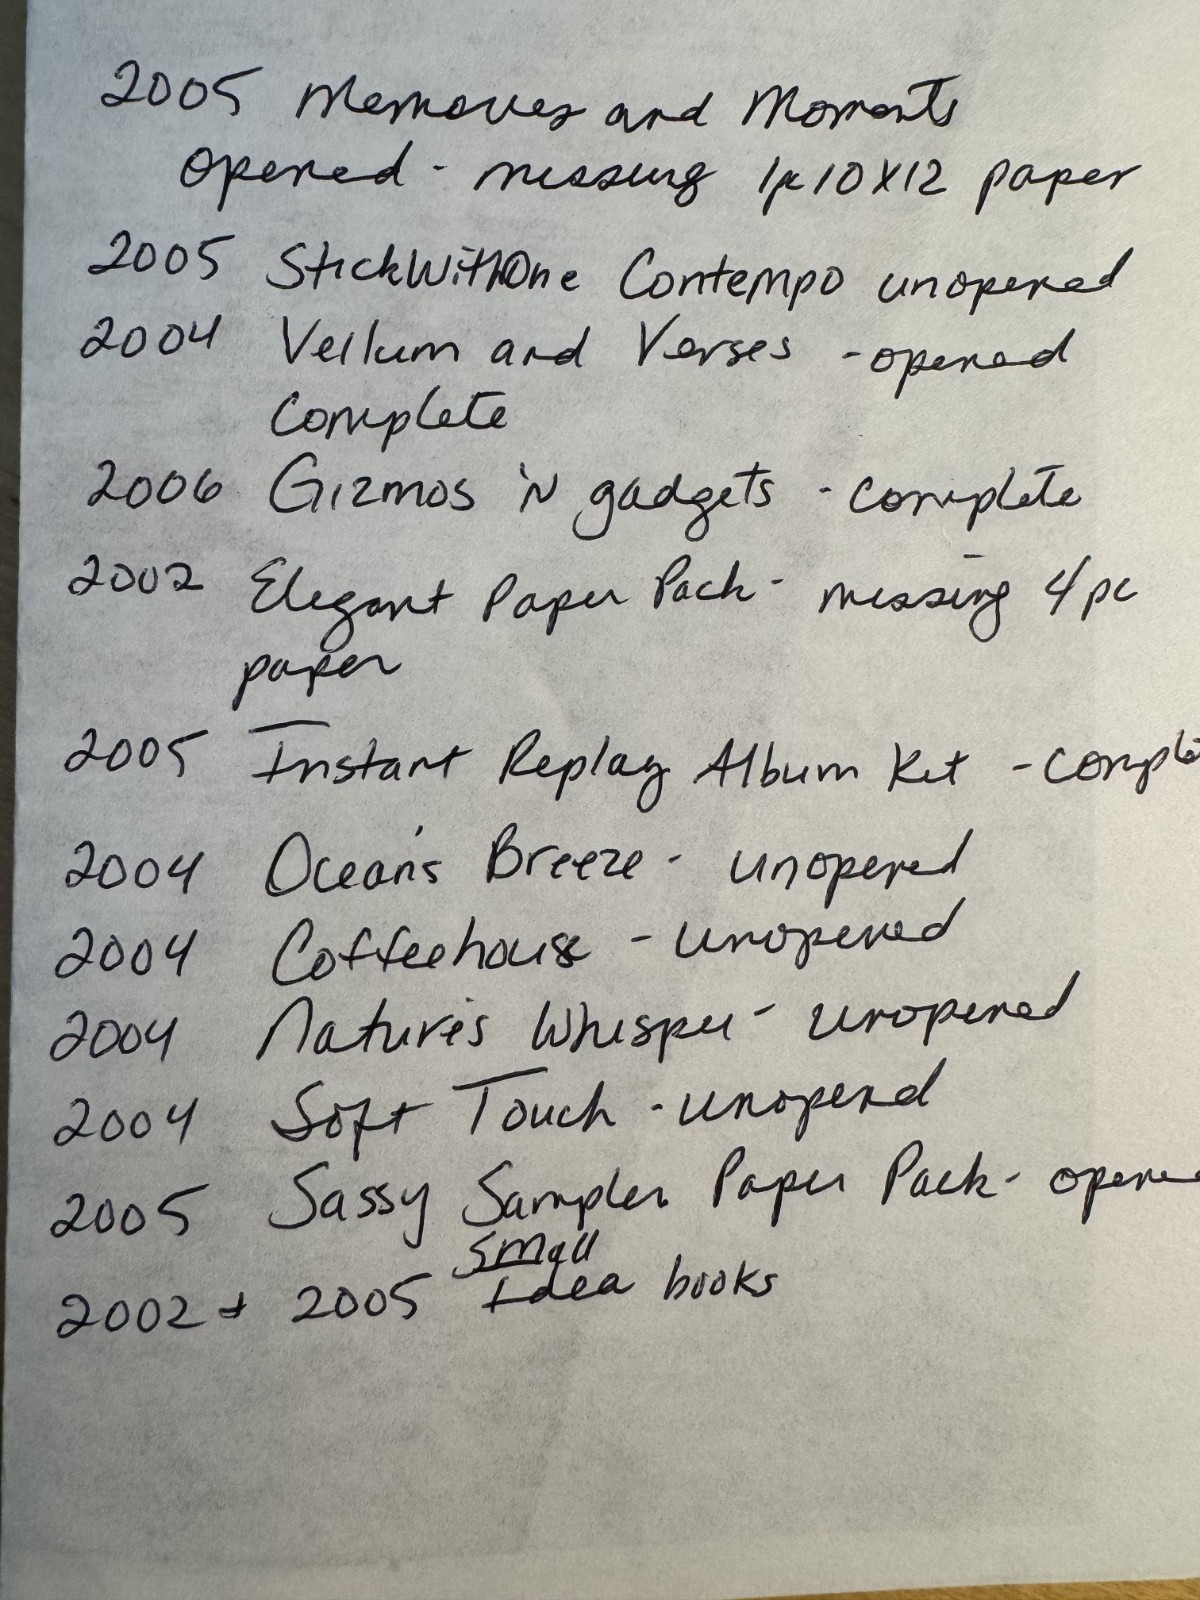 2005 Memories and Moments
opened - missing 1pc 10X12 paper
2005 StickWithOne Contempo unopened
2004 Vellum and Verses - opened
Complete
2006 Gizmos 'N gadgets - complete
2002 Elegant Paper Pack - missing 4 pc
paper
2005 Instant Replay Album Kit - comple
2004 Ocean's Breeze - unopened
2004 Coffeehouse - unopened
2004 Nature's Whisper - unopened
2004 Soft Touch - unopend
2005 Sassy Sampler Paper Pack - opene
small
2002 + 2005 Idea books